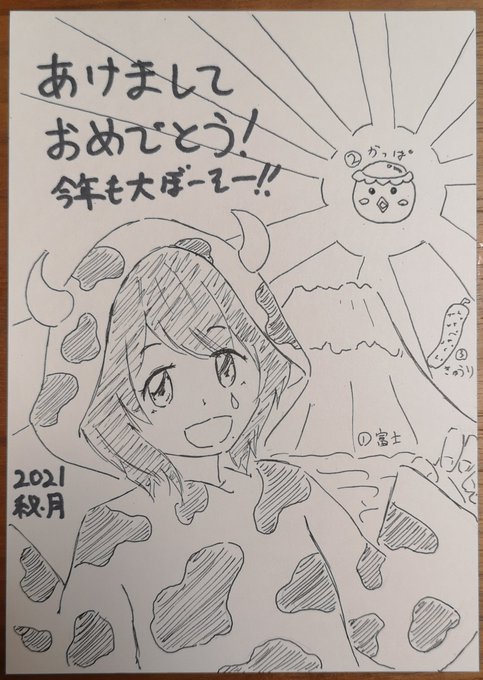 あけまして
おめでとう!
今年も大ぼーてー!!
②かっぱ
③
きゅうり
①富士
2021
秋月